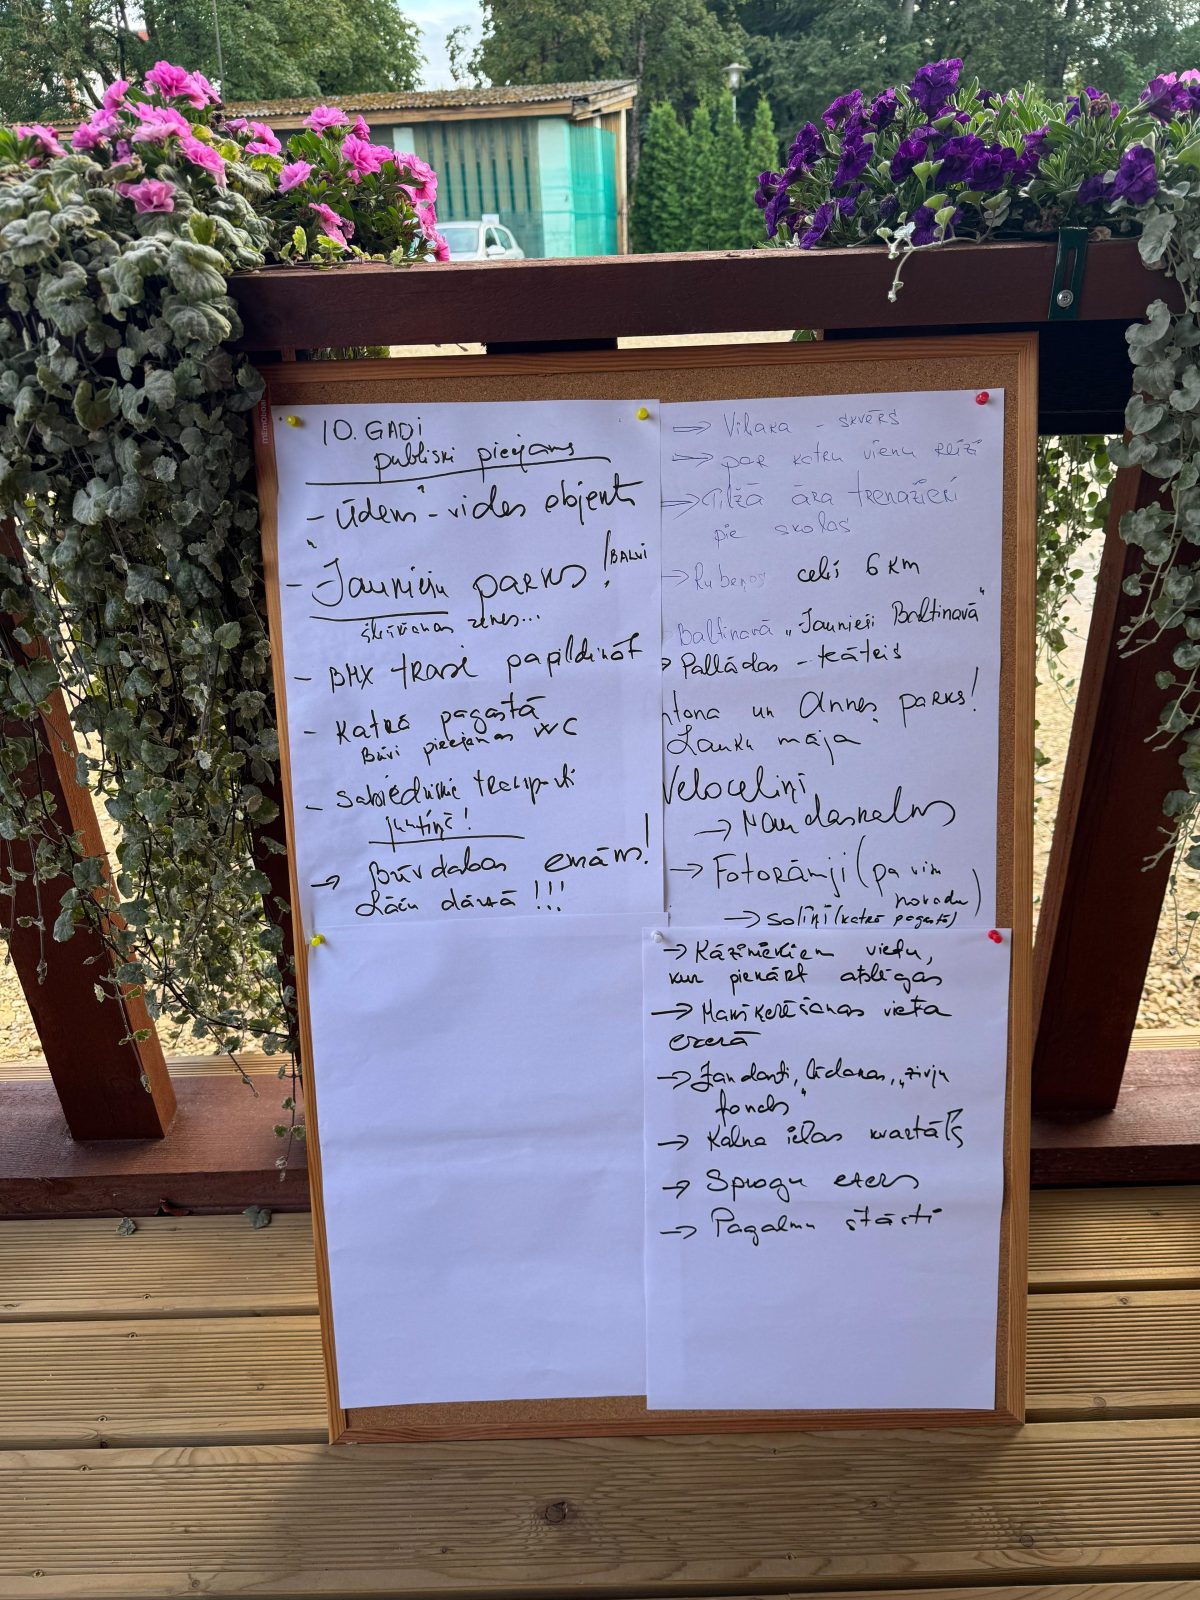 10. GADI
publiski pieejams
- Ūdens - vides objekti
- Jauniešu parks! (BALVI
zenes...
- BMX trase papildināt
- Katrā pagastā
Būvi pieejamas WC
- Sabiedriskie transporti
→ Būv dabas ēnām!
Lāču dārzā !!!
→ Viļaka - skvērs
→ par katru vienu reizi
→ Tilžā āra trenažieri
pie skolas
→ Rubeņos celiņš 6 km
Baltinavā „Jaunieši Baltinavā"
Pallādas - teātris
ntona un Annas parks!
Lauku māja
Veloceliņi
→ Naudaskalns
→ Fotorāmji (pa visu
novadu)
→ soliņi (katrā pagastā)
→ Kāzinīekiem vietu,
kur pienākt atslēgas
→ Makšķerēšanas vieta
ezerā
→ Zandarti, līdakas, „zivju
fonds"
→ Kalna ielas kvartāls
→ Sprogu ezers
→ Pagalmu stāsti